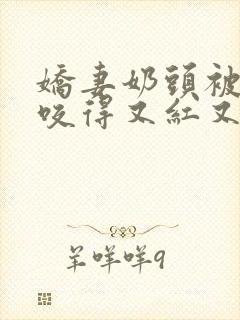 嬌妻奶頭被
咬得又紅又
羊咩咩9